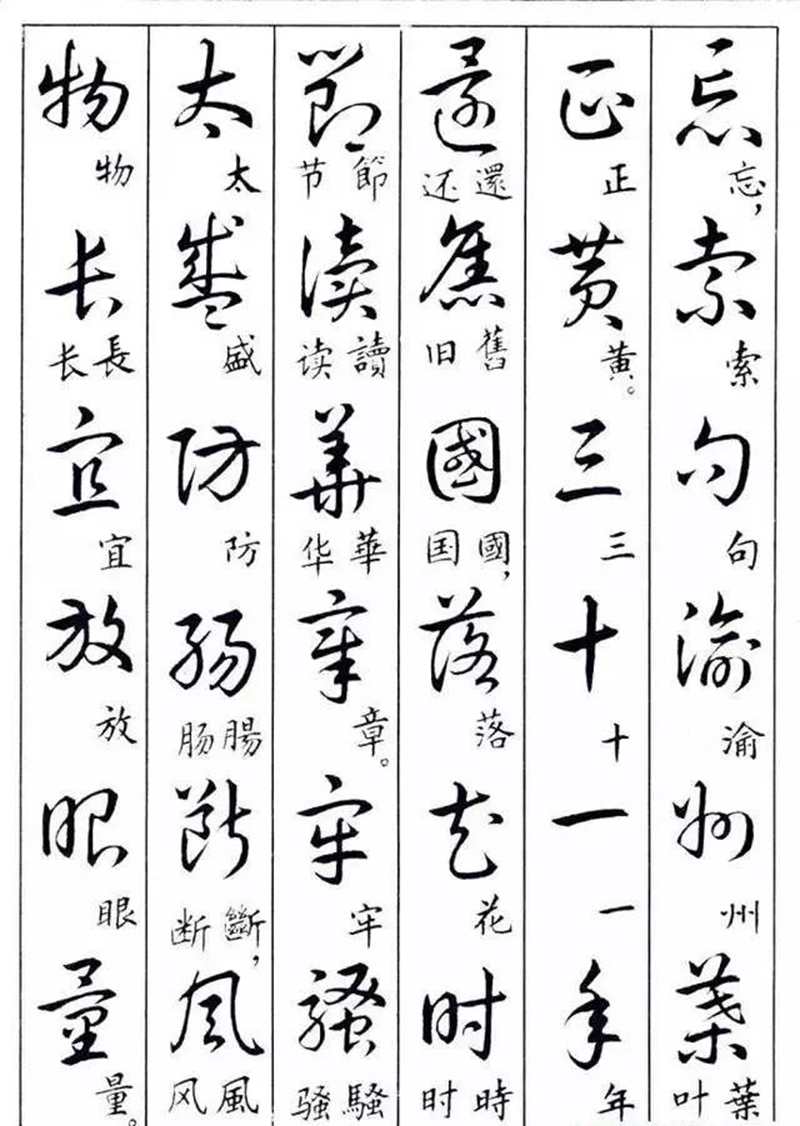 忘索句渝州葉
忘，索句渝州葉叶
正黄三十一年
正黄。三十一年
還舊國落花时
還还舊旧國，国落花時时
節读華章牢騷
節节讀读華华章。牢騷骚
太盛防腸斷風
太盛防腸肠斷，断風风
物长宜放眼量
物長长宜放眼量。